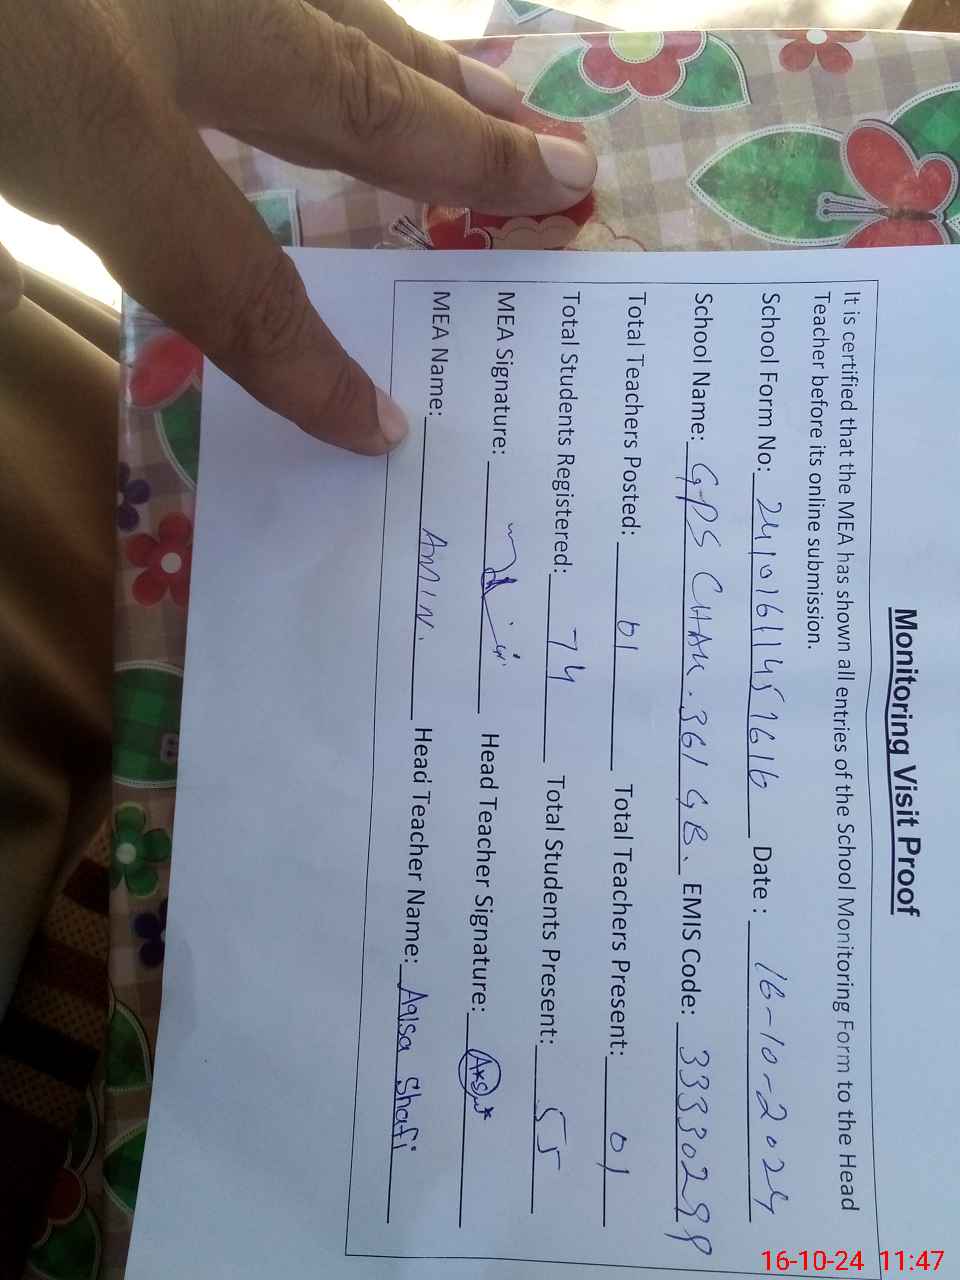 Monitoring Visit Proof
It is certified that the MEA has shown all entries of the School Monitoring Form to the Head
Teacher before its online submission.
School Form No: Date : 16-10-2024
School Name: GPS CHAK. 361 GB. EMIS Code:
Total Teachers Posted: 01 Total Teachers Present: 01
Total Students Registered: 74 Total Students Present: 55
MEA Signature: Head Teacher Signature:
MEA Name: AMIN. Head Teacher Name: Aqlsa Shafi
16-10-24 11:47